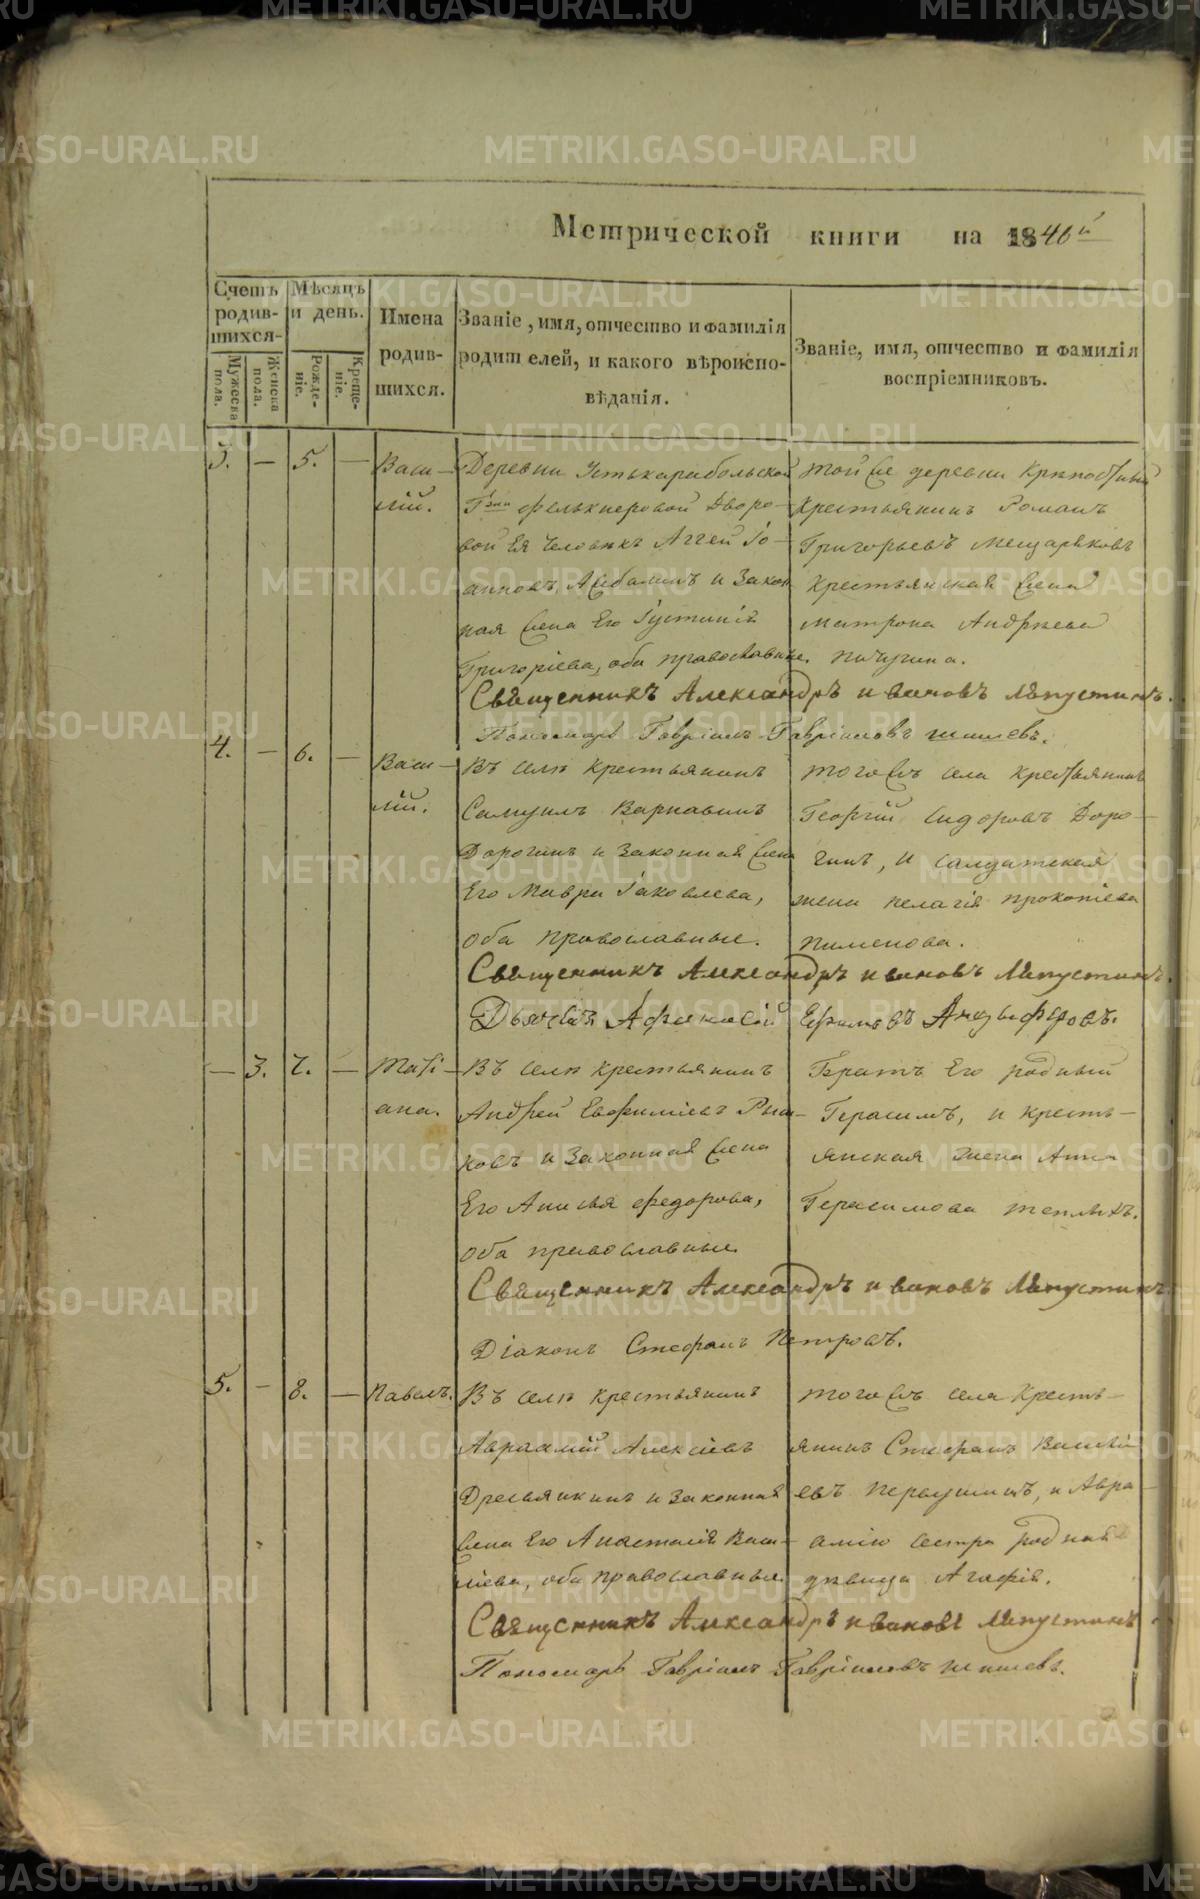 Метрической книги на 1840й
Счетъ родив- шихся
Мужеска пола.
Женска пола.
Мѣсяцъ и день.
Рожде- ніе.
Креще- ніе.
Имена родив- шихся.
Званіе, имя, отчество и фамилія
родителей, и какого вѣроиспо-
вѣданія.
Званіе, имя, отчество и фамилія
воспріемниковъ.
3. — 5. —
Васи-
лій.
Деревни
Гжи Фелькнеровой Дворо-
вой Ея Человѣкъ Аггей Іо-
анновъ и Закон
ная жена Его Іустинія
Григоріева, оба православные.
той же деревни Крѣпостный
Крестьянинъ Романъ
Григорьевъ Мещаряковъ
Крестьянская жена
Матрона Андреева
Пичугина.
Священникъ Александръ Ивановъ Ляпустинъ.
Пономарь Гавріилъ Гавріиловъ Шишевъ.
4. — 6. —
Васи-
лій.
Въ селѣ крестьянинъ
Самуилъ Варнавинъ
Дорогинъ и Законная жена
Его Мавра Іаковлева,
оба православные.
того жъ села крестьянинъ
Георгій Сидоровъ Доро-
гинъ, и солдатская
жена Пелагія Прокопіева
Пименова.
Священникъ Александръ Ивановъ Ляпустинъ.
Дьячекъ Афанасій Ефимовъ Анцыферовъ.
— 3. 7. —
Таті-
ана.
Въ селѣ крестьянинъ
Андрей Евфиміевъ Рыж-
ковъ и Законная жена
Его Анисья Федорова,
оба православные.
Братъ Его родный
Герасимъ, и кресть-
янская жена Анна
Герасимова Теплыхъ.
Священникъ Александръ Ивановъ Ляпустинъ
Діаконъ Стефанъ Петровъ.
5. — 8. —
Павелъ.
Въ селѣ крестьянинъ
Авраамій Алексіевъ
Дресвянкинъ и Законная
жена Его Анастасія Васи-
ліева, оба православные
того жъ села Кресть-
янинъ Стефанъ Василі-
евъ Первушинъ, и Авра-
амію сестра родная
дѣвица Агафія.
Священникъ Александръ Ивановъ Ляпустинъ
Пономарь Гавріилъ Гавріиловъ Шишевъ.
METRIKI.GASO-URAL.RU